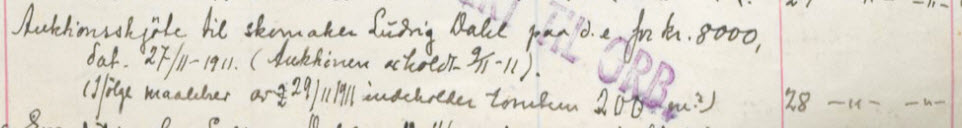 Auktionsskjöte til skomaker Ludvig Dahl paa d. e. for kr. 8000,
dat. 27/11-1911. (Auktionen avholdt 9/11-11).
(Ifölge maalebrev av 29/11 1911 indeholder tomten 200 m²) 28 -"- -"-
TIL ORB.